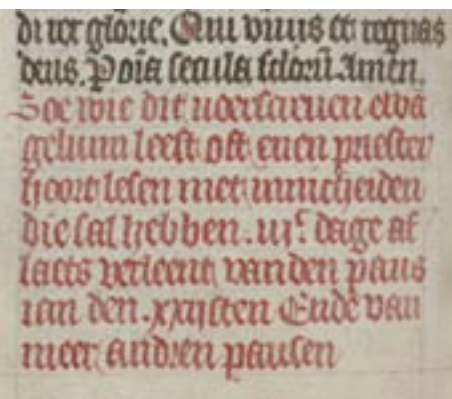 di rex glorie. Qui viuis et regnas
deus. P oīa secula sclorū Amen.
Soe wie dit ewā
gelium leest oft enen priester
hoort lesen met innicheiden
die sal hebben .iijᶜ. dage af
laets verleent vanden paus
ian den .xxijsten Ende van
meer andren pausen